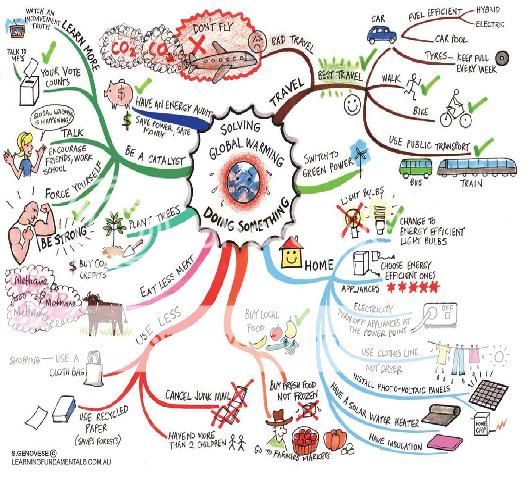 SOLVING
GLOBAL WARMING
DOING SOMETHING
TRAVEL
BAD TRAVEL
DON'T FLY
CO2
CO2
BEST TRAVEL
CAR
FUEL EFFICIENT
HYBRID
ELECTRIC
CAR POOL
TYRES
KEEP FULL
EVERY WEEK
WALK
BIKE
USE PUBLIC TRANSPORT
BUS
TRAIN
SWITCH TO
GREEN POWER
HOME
LIGHT BULBS
CHANGE TO
ENERGY EFFICIENT
LIGHT BULBS
APPLIANCES
CHOOSE ENERGY
EFFICIENT ONES
ELECTRICITY
TURN OFF APPLIANCES AT
THE POWER POINT
USE CLOTHES LINE
NOT DRYER
INSTALL PHOTO-VOLTAIC PANELS
HAVE A SOLAR WATER HEATER
HAVE INSULATION
BUY LOCAL
FOOD
BUY FRESH FOOD
NOT FROZEN
GO TO FARMERS MARKETS
USE LESS
CANCEL JUNK MAIL
HAVE NO MORE
THAN 2 CHILDREN
USE RECYCLED
PAPER
(SAVES FORESTS)
SHOPPING - USE A
CLOTH BAG
EAT LESS MEAT
Methane
Methane
Methane
PLANT TREES
$ BUY CO2
CREDITS
BE A CATALYST
FORCE YOURSELF
BE STRONG
TALK
ENCOURAGE
FRIENDS, WORK
SCHOOL
GLOBAL WARMING
IS HAPPENING!
YOUR VOTE
COUNTS
TALK TO
MP'S
LEARN MORE
WATCH AN
INCONVENIENT
TRUTH
HAVE AN ENERGY AUDIT
SAVE POWER, SAVE
MONEY
$
S.GENOVESE ©
LEARNINGFUNDAMENTALS.COM.AU